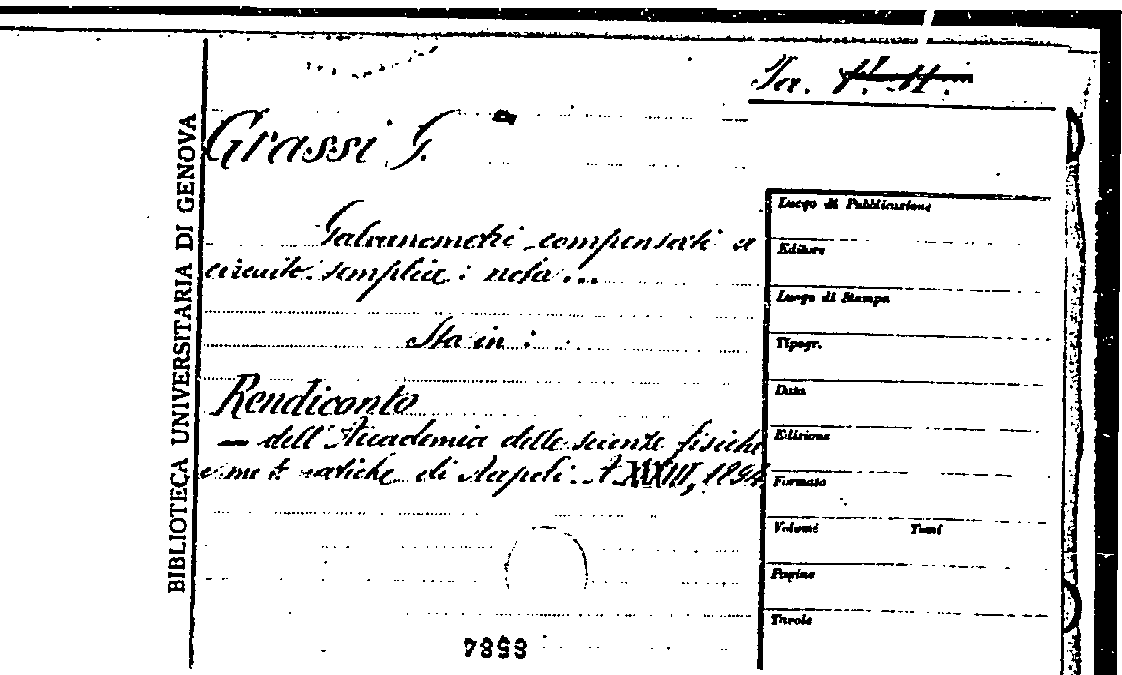 BIBLIOTECA UNIVERSITARIA DI GENOVA
Grassi G.
Galvanometri compensati a
circuito semplice: nota...
Sta in:
Rendiconto
— dell'Accademia delle scienze fisiche
e matematiche di Napoli. A. XXXIII, 1894.
8584
Luogo di Pubblicazione
Editore
Luogo di Stampa
Tipogr.
Data
Edizione
Formato
Volumi Tomi
Pagine
Tavole